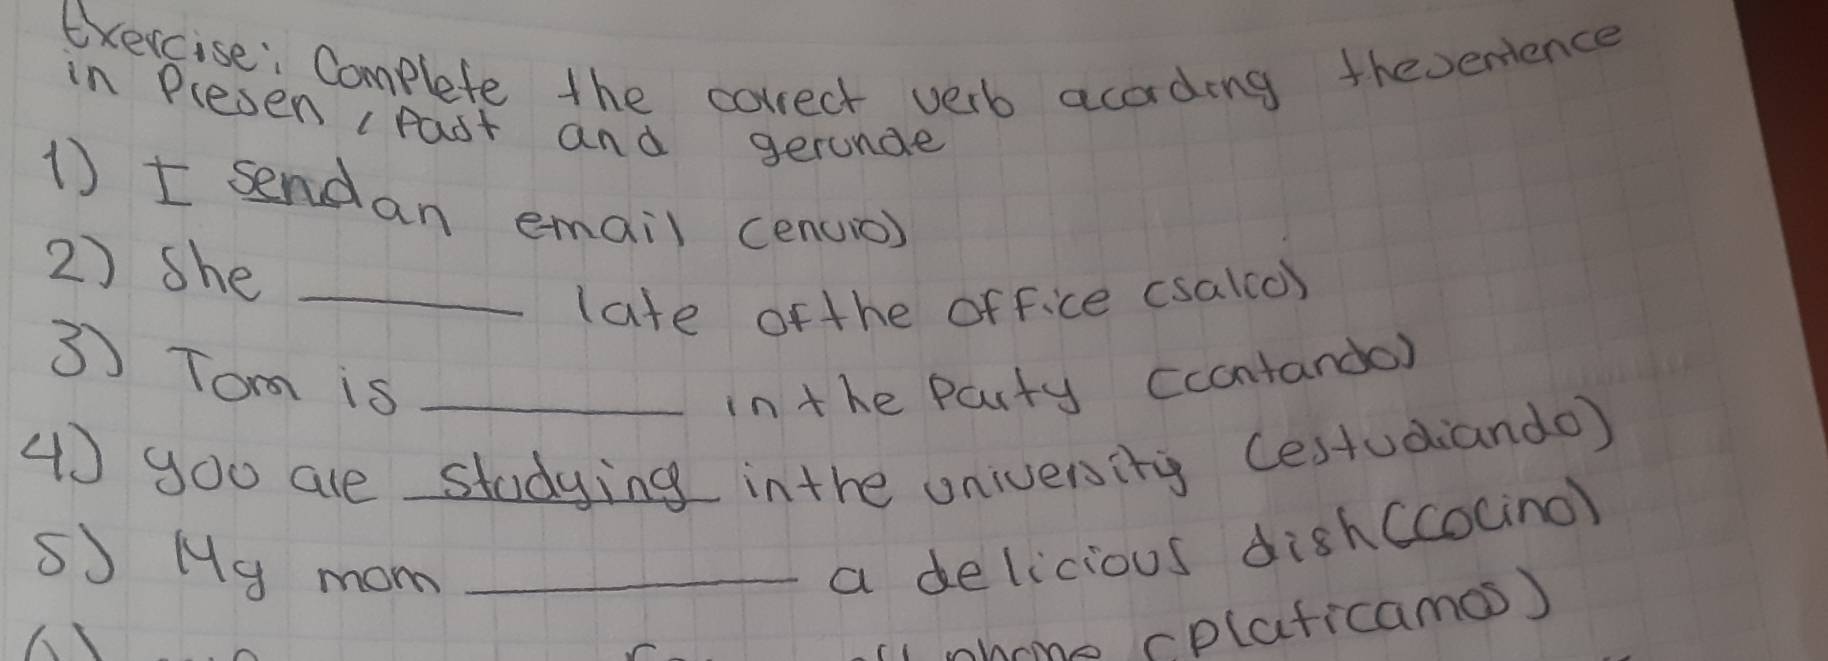 Exercise: Complete the correct verb acording the sentence
in Presen, Past and gerunde
1) I send an email (envio)
2) She ______ late of the office (salio)
3) Tom is ______ in the Party (cantando)
4) you are studying in the university (estudiando)
5) My mom ______ a delicious dish (cocino)
phone (platicamos)